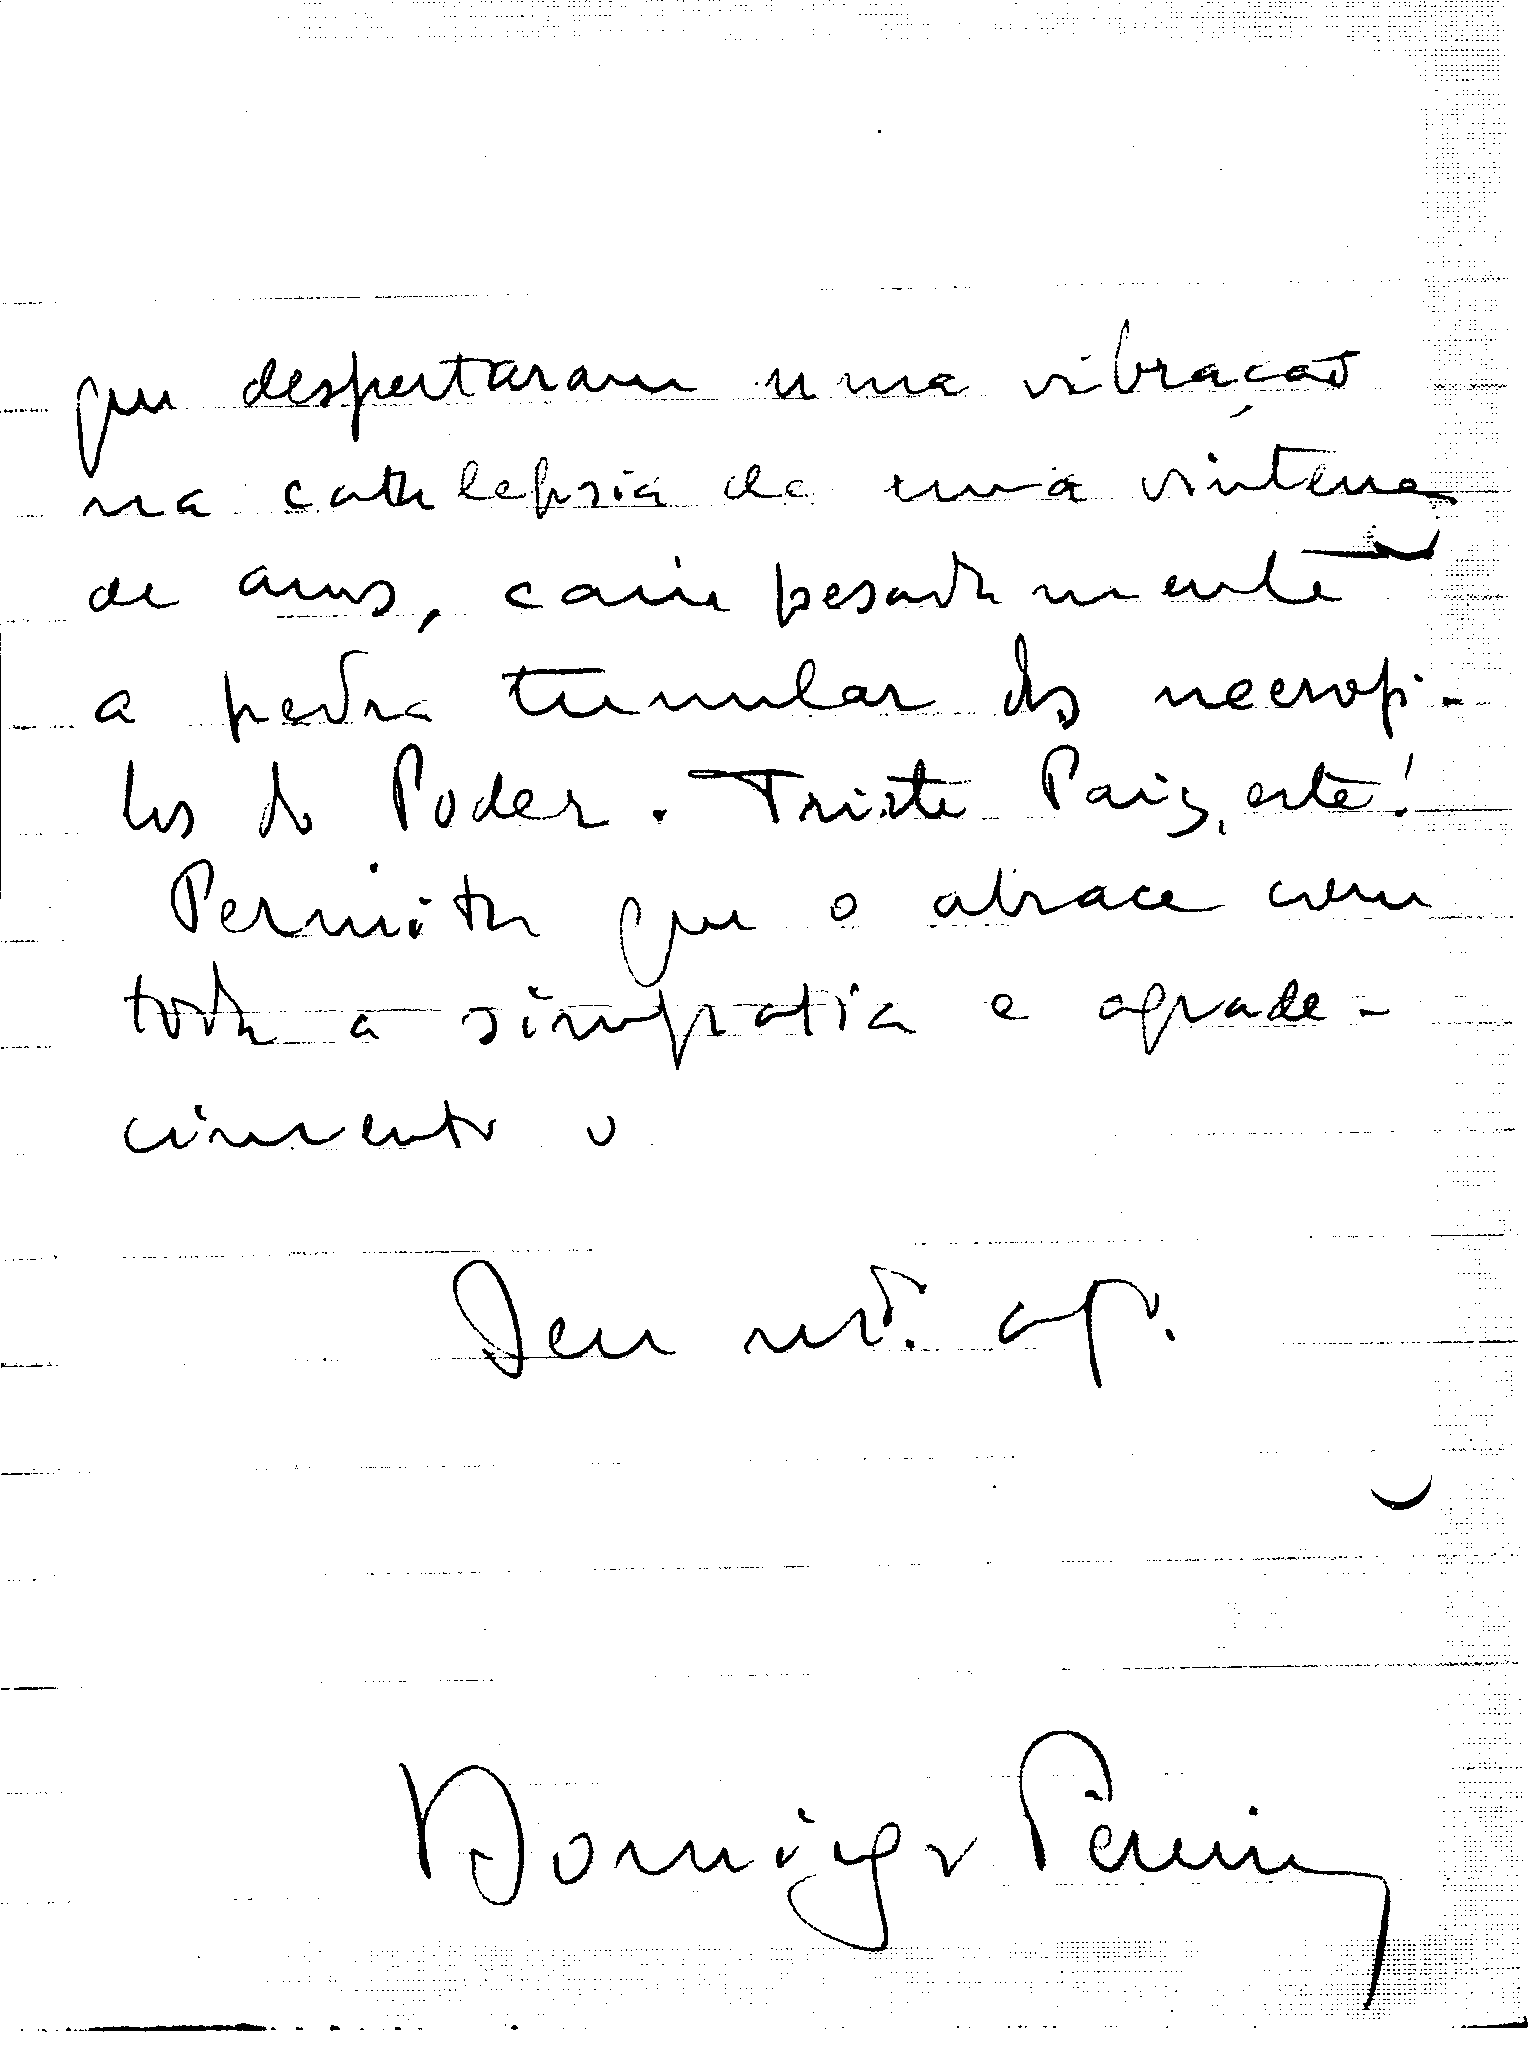 que despertaram uma vibração
na catalepsia de uma vintena
de anos, caiu pesadamente
a pedra tumular dos necropi-
los do Poder. Triste Paiz, este!
Permita que o abrace com
toda a simpatia e agrade-
cimento o
Seu mt.
Domingos Pereira